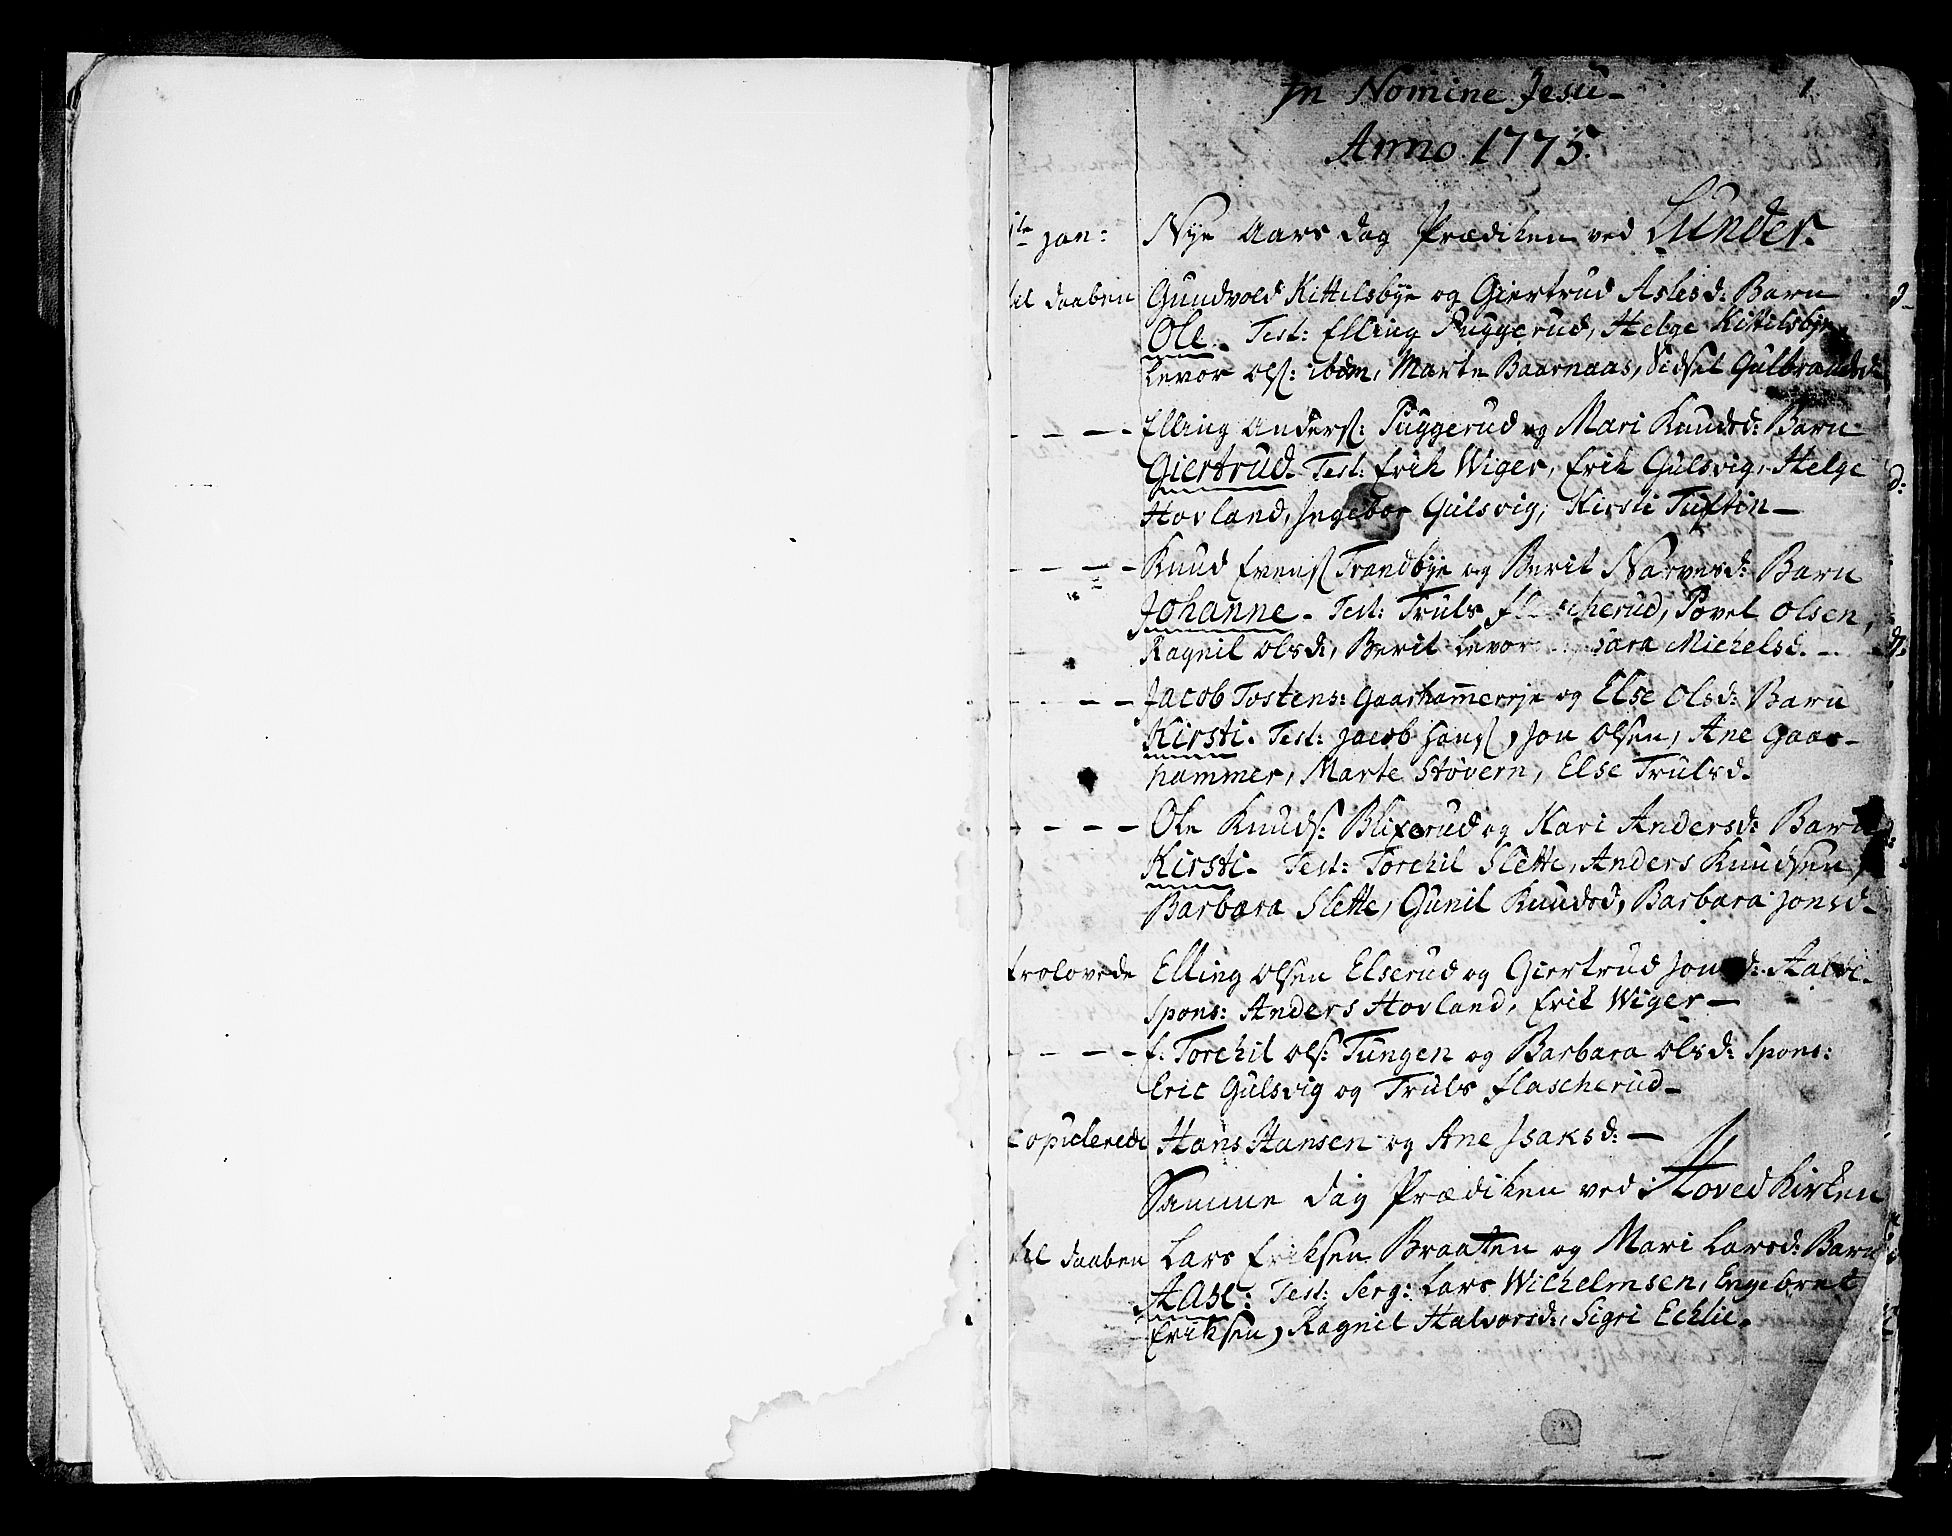 In Nomine Jesu
1
Anno 1775.
1te Jan: Nÿe Aars dag Prædiken ved Lunder.
til daaben Gundvold Kittilsbÿe og Giertrud Aslesd: Barn
Ole. Test: Elling Puggerud, Helge Kittilsbÿe,
Levor Ols: ibdm, Marte Baarnaas, Sidsel Gulbrandsd.
- - - - Elling Anders: Puggerud og Mari Knudsd: Barn
Giertrud. Test: Erik Wiger, Erik Gulsvig, Helge
Hovland, Ingebor Gulsvig, Kirsti Tuftin -
- - - - Knud Evens: Trandbÿe og Berit Narvesd: Barn
Johanne. Test: Truls Flascherud, Povel Olsen,
Ragnil Olsd:, Berit Levor Sara Michelsd.
- - - - Jacob Tostens: Gaarhammereje og Else Olsd: Barn
Kirsti. Test: Jacob Hans:, Jon Olsen, Ane Gaar-
hammer, Marte Støvern, Else Trulsd.
- - - - Ole Knuds: Blixerud og Kari Andersd: Barn
Kirsti. Test: Torchil Slette, Anders Knudsen,
Barbara Slette, Gunil Knudsd, Barbara Jonsd.
trolovede Elling Olsen Elserud og Giertrud Jonsd:
Spons: Anders Hovland, Erik Wiger -
- - - - f. Torchil Ols: Tungen og Barbara Olsd: Spons:
Eric Gulsvig og Truls Flascherud -
Copulerede Hans Hansen og Ane Isaksd: -
Samme dag Prædiken ved Hovedkirken
til daaben Lars Eriksen Braaten og Mari Larsd: Barn
Aase: Test: Serg: Lars Wilhelmsen, Engebret
Eriksen, Ragnil Halvorsd:, Sigri Echlie.